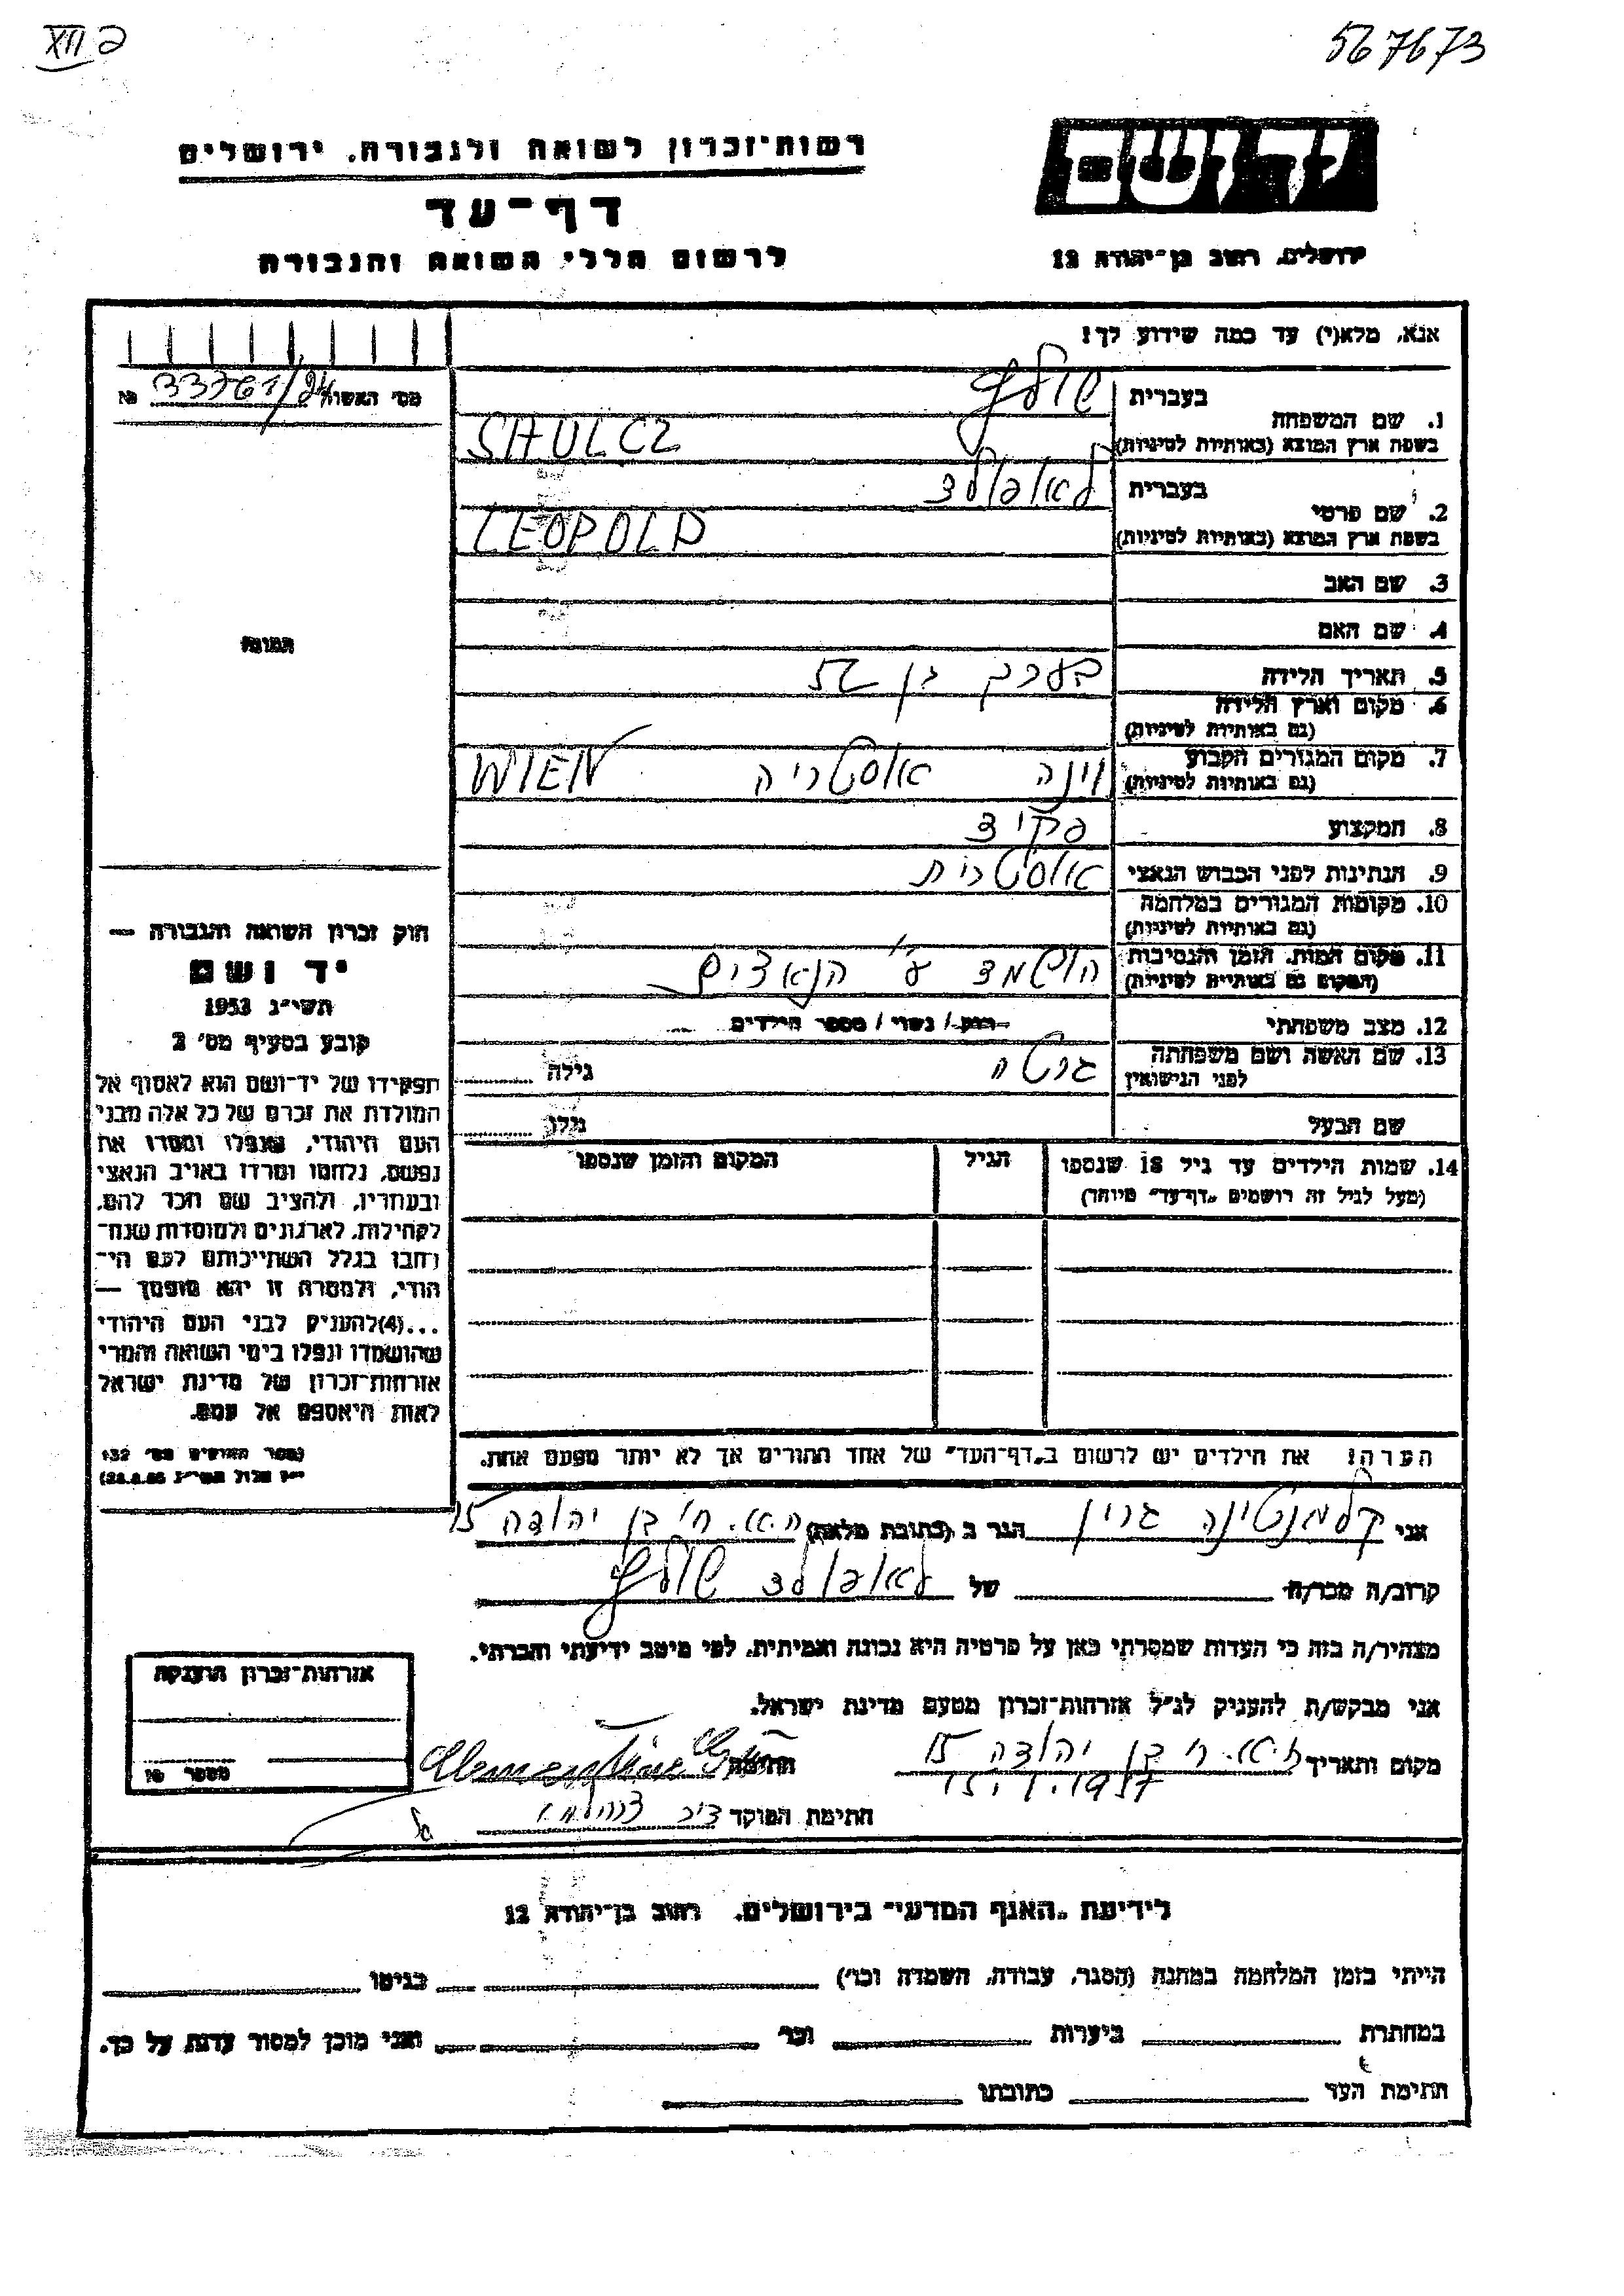 XII 2
567673
יד ושם
ירושלים, רחוב בן־יהודה 12
רשות־זכרון לשואה ולגבורה, ירושלים
דף־עד
לרשום חללי השואה והגבורה
אנא, מלא(י) עד כמה שידוע לך!
מס' האשור 33761/24 №
1. שם המשפחה
בעברית שולץ
בשפת ארץ המוצא (באותיות לטיניות) SHULCZ
2. שם פרטי
בעברית לאופולד
בשפת ארץ המוצא (באותיות לטיניות) LEOPOLD
3. שם האב
4. שם האם
5. תאריך הלידה בערך בן 52
6. מקום וארץ הלידה
(גם באותיות לטיניות)
7. מקום המגורים הקבוע וינה אוסטריה WIEN
(גם באותיות לטיניות)
8. המקצוע פקיד
9. הנתינות לפני הכבוש הנאצי אוסטרית
10. מקומות המגורים במלחמה
(גם באותיות לטיניות)
11. מקום המות, הזמן והנסיבות הושמד ע"י הנאצים
(המקום גם באותיות לטיניות)
12. מצב משפחתי רווק / נשוי / מספר הילדים
13. שם האשה ושם משפחתה גרטה גילה
לפני הנישואין
שם הבעל גילו
14. שמות הילדים עד גיל 18 שנספו הגיל המקום והזמן שנספו
(מעל לגיל זה רושמים „דף־עד" מיוחד)
התמונה
חוק זכרון השואה והגבורה —
יד ושם
תשי"ג 1953
קובע בסעיף מס' 2
תפקידו של יד־ושם הוא לאסוף אל
המולדת את זכרם של כל אלה מבני
העם היהודי, שנפלו ומסרו את
נפשם, נלחמו ומרדו באויב הנאצי
ובעוזריו, ולהציב שם וזכר להם,
לקהילות, לארגונים ולמוסדות שנח־
רבו בגלל השתייכותם לעם הי־
הודי, ולמטרה זו יהא מוסמך —
...(4) להעניק לבני העם היהודי
שהושמדו ונפלו בימי השואה והמרי
אזרחות־זכרון של מדינת ישראל
לאות היאספם אל עמם.
(ספר החוקים מס' 132
הערה! את הילדים יש לרשום ב„דף־העד" של אחד ההורים אך לא יותר מפעם אחת.
אני קלמנטינה גרין הגר ב (כתובת מלאה) ת.א. רח' בן יהודה 15
קרוב/ה מכר/ה של לאופולד שולץ
מצהיר/ה בזה כי העדות שמסרתי כאן על פרטיה היא נכונה ואמיתית, לפי מיטב ידיעתי והכרתי.
אני מבקש/ת להעניק לנ"ל אזרחות־זכרון מטעם מדינת ישראל.
מקום ותאריך ת.א. ר' בן יהודה 15 חתימה Clementine Grün
15.1.1957
חתימת הפוקד
אזרחות־זכרון הוענקה
מספר №
לידיעת „האגף המדעי" בירושלים, רחוב בן־יהודה 12
הייתי בזמן המלחמה במחנה (הסגר, עבודה, השמדה וכו') בגיטו
במחתרת ביערות וכו' ואני מוכן למסור עדות על כך.
חתימת העד כתובתו